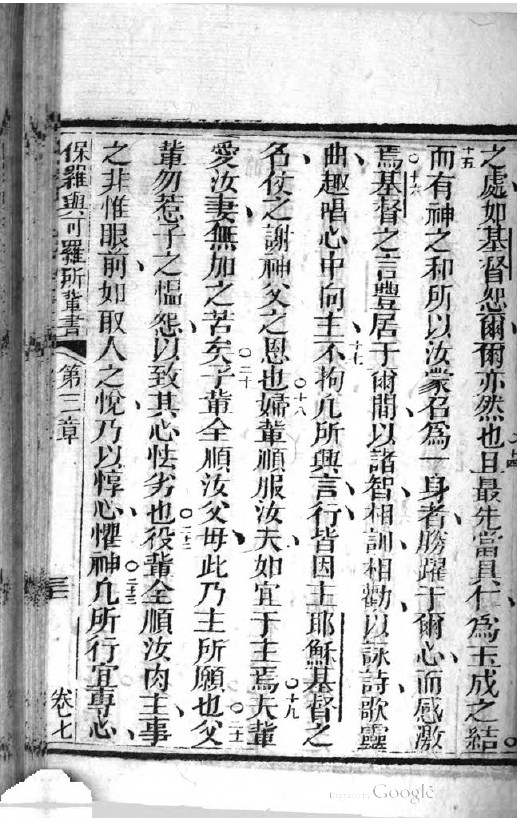 之處如基督恕爾爾亦然也且十四最先當具仁為玉成之結
十五而有神之和所以汝蒙召為一身者勝躍于爾心而感激
焉十六基督之言豐居于爾間以諸智相訓相勸以詠詩歌靈
曲趣唱心中向主十七不拘凢所與言行皆因主耶穌基督之
名仗之謝神父之恩也十八婦輩順服汝夫如宜于主焉十九夫輩
愛汝妻無加之苦矣二十子輩全順汝父母此乃主所願也二一父
輩勿惹子之慍怨以致其心怯劣也二二役輩全順汝肉主事
之非惟眼前如取人之悅乃以惇心懼神二三凢所行宜專心
保羅與可羅所輩書 第三章 三 卷七
Digitized by Google